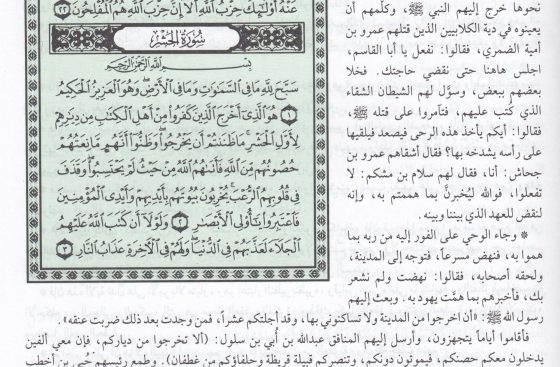 نحوها خرج إليهم النبي ﷺ، وكلَّمهم أن
يعينوه في دية الكلابيين الذين قتلهم عمرو بن
أمية الضمري، فقالوا: نفعل يا أبا القاسم،
اجلس هاهنا حتى نقضي حاجتك. فخلا
بعضهم ببعض، وسوَّل لهم الشيطان الشقاء
الذي كُتب عليهم، فتآمروا على قتله ﷺ،
فقالوا: أيكم يأخذ هذه الرحى فيصعد فيلقيها
على رأسه يشدخه بها؟ فقال أشقاهم عمرو بن
جحاش: أنا، فقال لهم سلام بن مشكم: لا
تفعلوا، فوالله ليُخبرنَّ بما هممتم به، وإنه
لنقض للعهد الذي بيننا وبينه.
* وجاء الوحي على الفور إليه من ربه بما
هموا به، فنهض مسرعاً، فتوجه إلى المدينة،
ولحقه أصحابه، فقالوا: نهضت ولم نشعر
بك، فأخبرهم بما همَّت يهود به. وبعث إليهم
عَنْهُ أُوْلَٰٓئِكَ حِزْبُ ٱللَّهِ أَلَآ إِنَّ حِزْبَ ٱللَّهِ هُمُ ٱلْمُفْلِحُونَ ٢٢
سُورَةُ الحَشْرِ
بِسْمِ ٱللَّهِ ٱلرَّحْمَٰنِ ٱلرَّحِيمِ
سَبَّحَ لِلَّهِ مَا فِى ٱلسَّمَٰوَٰتِ وَمَا فِى ٱلْأَرْضِ وَهُوَ ٱلْعَزِيزُ ٱلْحَكِيمُ
١ هُوَ ٱلَّذِىٓ أَخْرَجَ ٱلَّذِينَ كَفَرُوا۟ مِنْ أَهْلِ ٱلْكِتَٰبِ مِن دِيَٰرِهِمْ
لِأَوَّلِ ٱلْحَشْرِ مَا ظَنَنتُمْ أَن يَخْرُجُوا۟ وَظَنُّوٓا۟ أَنَّهُم مَّانِعَتُهُمْ
حُصُونُهُم مِّنَ ٱللَّهِ فَأَتَىٰهُمُ ٱللَّهُ مِنْ حَيْثُ لَمْ يَحْتَسِبُوا۟ وَقَذَفَ
فِى قُلُوبِهِمُ ٱلرُّعْبَ يُخْرِبُونَ بُيُوتَهُم بِأَيْدِيهِمْ وَأَيْدِى ٱلْمُؤْمِنِينَ
فَٱعْتَبِرُوا۟ يَٰٓأُو۟لِى ٱلْأَبْصَٰرِ ٢ وَلَوْلَآ أَن كَتَبَ ٱللَّهُ عَلَيْهِمُ
ٱلْجَلَآءَ لَعَذَّبَهُمْ فِى ٱلدُّنْيَا وَلَهُمْ فِى ٱلْءَاخِرَةِ عَذَابُ ٱلنَّارِ ٣
رسول الله ﷺ: «أن اخرجوا من المدينة ولا تساكنوني بها، وقد أجلتكم عشراً، فمن وجدت بعد ذلك ضربت عنقه»
فأقاموا أياماً يتجهزون، وأرسل إليهم المنافق عبدالله بن أُبي بن سلول: (ألا تخرجوا من دياركم، فإن معي ألفين
يدخلون معكم حصنكم، فيموتون دونكم، وتنصركم قبيلة قريظة وحلفاؤكم من غطفان). وطمع رئيسهم حُيي بن أخطب